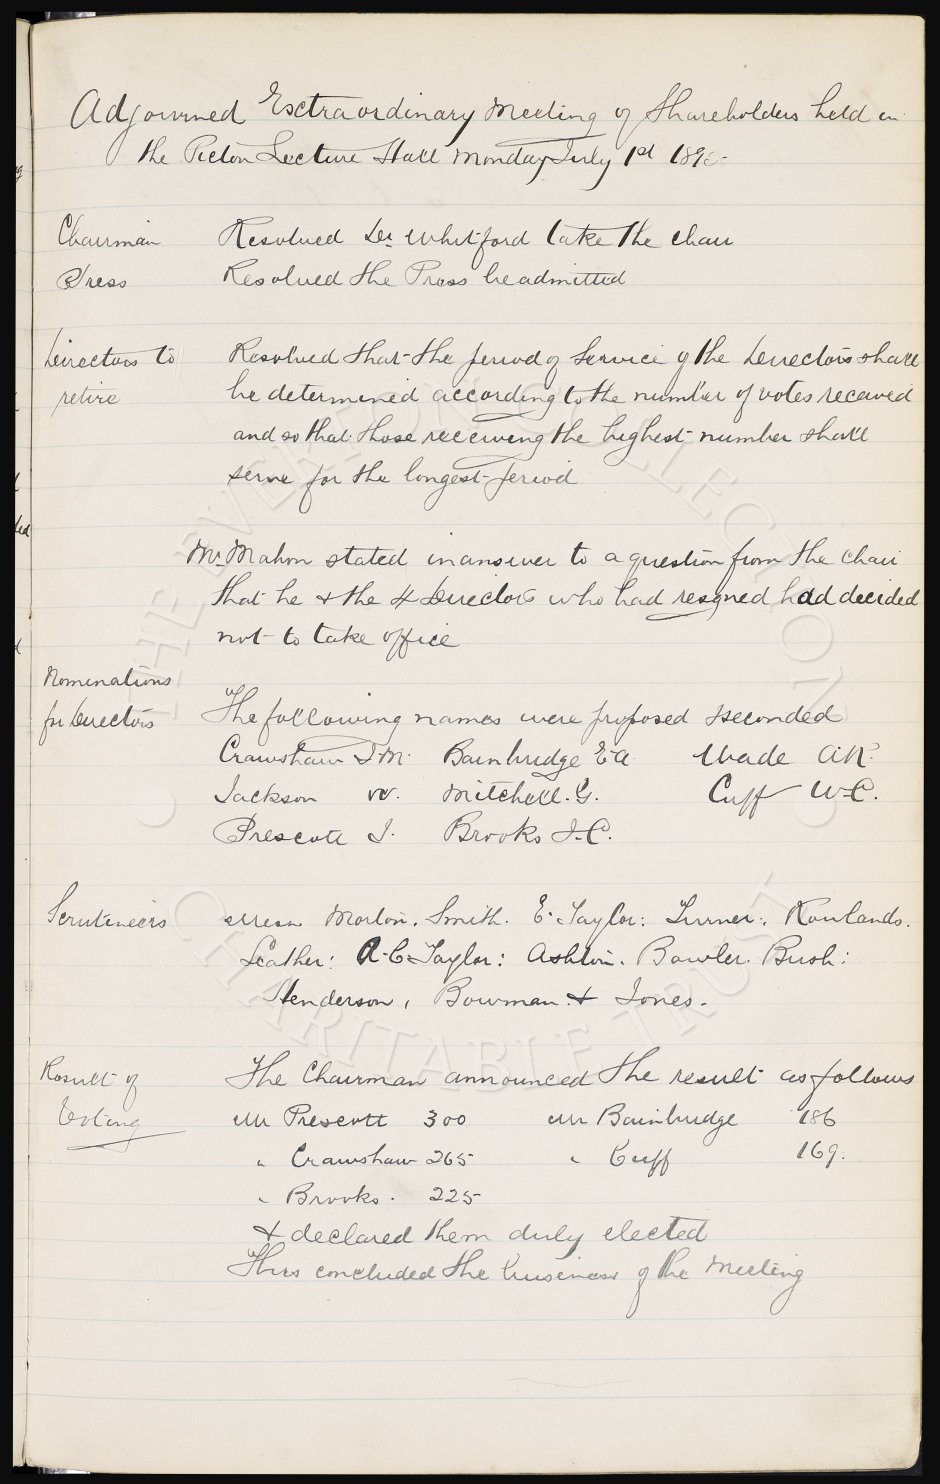 Adjourned Extraordinary Meeting of Shareholders held in
the Picton Lecture Hall Monday July 1st 1895
Chairman Resolved Dr Whitford take the chair
Press Resolved the Press be admitted
Directors to Resolved that the period of Service of the Directors shall
retire be determined according to the number of votes received
and so that those receiving the highest number shall
serve for the longest period
Mr Mahon stated in answer to a question from the chair
that he & the 4 Directors who had resigned had decided
not to take office
Nominations
for Directors The following names were proposed & seconded
Crawshaw J.M. Bainbridge E.A. Wade A.R.
Jackson W. Mitchell. G. Cuff W.C.
Prescott J. Brooks J.C.
Scruteneers Messrs Morton. Smith. E. Taylor: Turner: Rowlands.
Leather: A.C. Taylor: Ashton. Bowler. Bush:
Henderson, Bowman. & Jones.
Result of The Chairman announced the result as follows
Voting Mr Prescott 300 Mr Bainbridge 186
" Crawshaw 265 " Cuff 169.
" Brooks. 225
& declared them duly elected
This concluded the business of the Meeting
THE EVERTON COLLECTION
CHARITABLE TRUST